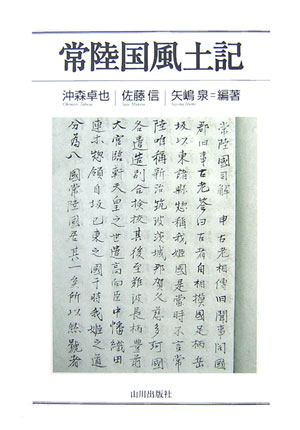 常陸国風土記
沖森卓也 佐藤信 矢嶋泉=編著
Okimori Takuya Sato Makoto Yajima Izumi
常陸國司解 申古老相傳旧聞事問國
郡旧事古老答曰古者自相摸國足柄岳
坂以東諸縣惣稱我姫國是當時不言常
陸唯稱新治筑波茨城那賀久慈多珂國
各遣造別令検挍其後至難波長柄豊前
大宮臨軒天皇之世遣高向臣中幡織田
連木惣領自坂已東之國于時我姫之道
分為八國常陸國居其一矣所以然號者
山川出版社